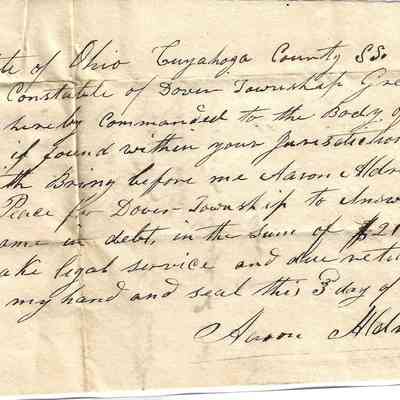 te of Ohio Cuyahoga County SS.
Constable of Dover Township Gre
hereby Commanded to the Body of
if found within your Jurisdiction
th Bring before me Aaron Aldr
Peace for Dover Township to Answ
ame in debt, in the sum of $21
ake legal service and due retu
my hand and seal this 3 day of
Aaron Aldr